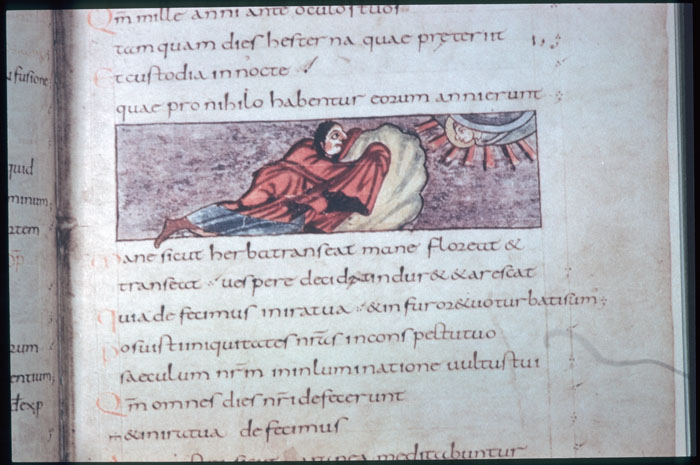 usione
quid
minum
rtem
rum
entium
d&exp
Qm mille anni ante oculos tuos
tam quam dies hesterna quae preteriit
Et custodia in nocte
quae pro nihilo habentur eorum anni erunt
Mane sicut herba transeat mane floreat &
transeat vespere decidat indur& & arescat
Quia defecimus in ira tua & in furore tuo turbati sum;
Posuisti iniquitates nras in conspectu tuo
saeculum nrm in inluminatione vultus tui
Qm omnes dies nri defecerunt
& in ira tua defecimus
meditabuntur